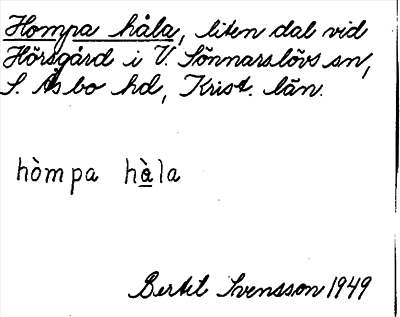 Hompa håla, liten dal vid
Hörsgård i V. Sönnarslövs sn,
S. Åsbo hd, Krist. län.
hòmpa hàla
Bertil Svensson 1949